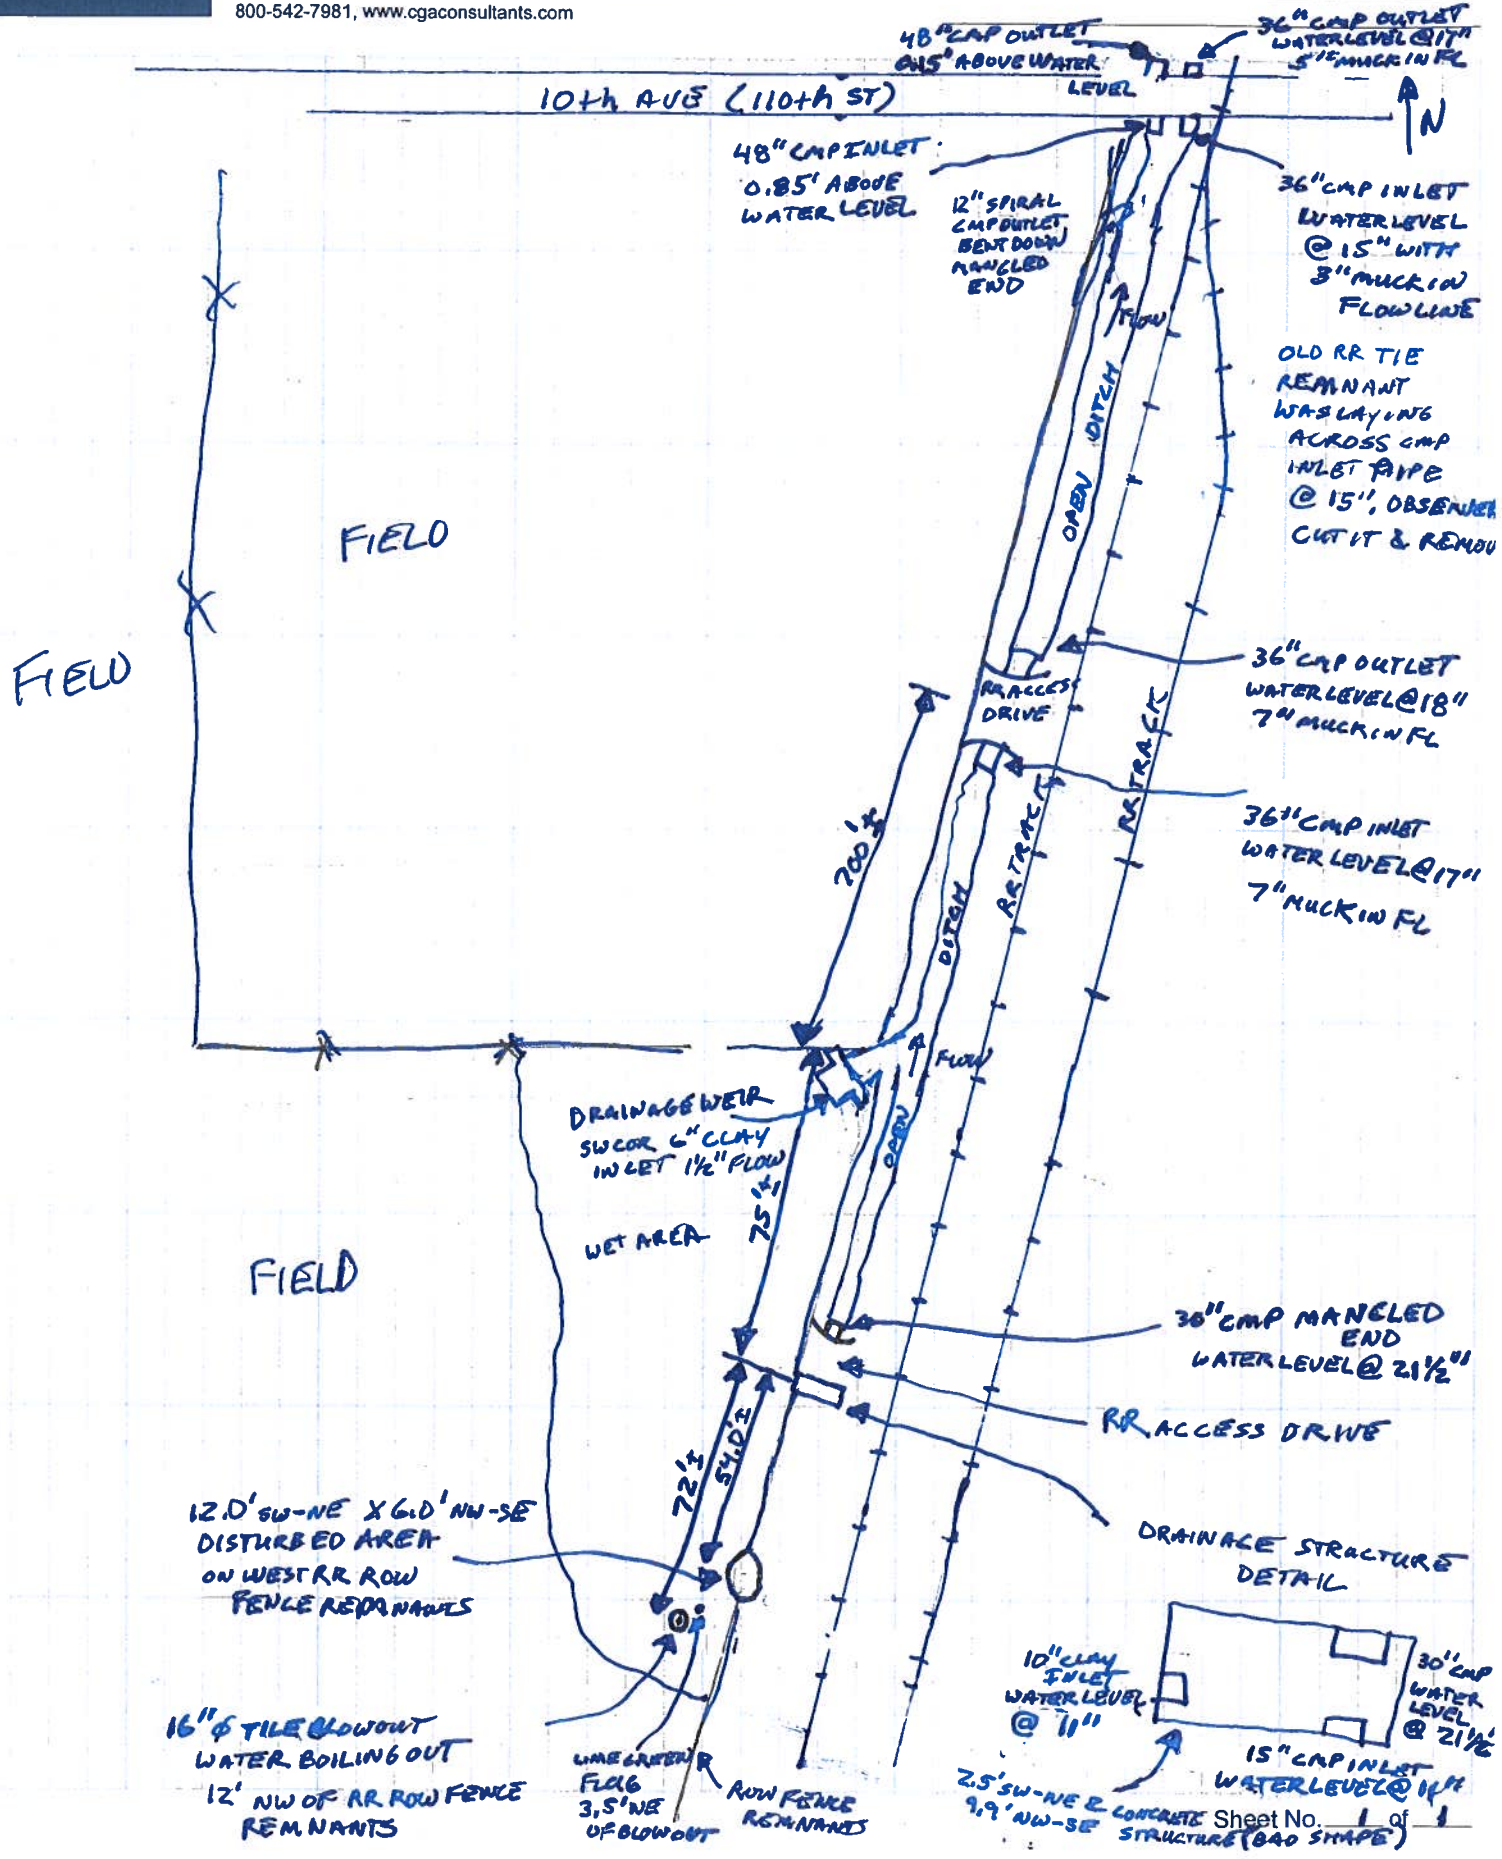 800-542-7981, www.cgaconsultants.com
48" CMP OUTLET
0.15' ABOVE WATER
LEVEL
36" CMP OUTLET
WATER LEVEL @ 17"
5" MUCK IN FL
10th AVE (110th ST)
N
48" CMP INLET
0.85' ABOVE
WATER LEVEL
12" SPIRAL
CMP OUTLET
BENT DOWN
MANGLED
END
36" CMP INLET
WATER LEVEL
@ 15" WITH
3" MUCK IN
FLOWLINE
FLOW
OLD RR TIE
REMNANT
WAS LAYING
ACROSS CMP
INLET PIPE
@ 15", OBSERVER
CUT IT & REMOV
OPEN DITCH
FIELD
FIELD
36" CMP OUTLET
WATER LEVEL @ 18"
7" MUCK IN FL
RR ACCESS
DRIVE
RR TRACK
RR TRACK
36" CMP INLET
WATER LEVEL @ 17"
7" MUCK IN FL
700'±
DITCH
FLOW
OPEN
DRAINAGE WEIR
SW COR 6" CLAY
INLET 1½" FLOW
75'±
WET AREA
FIELD
30" CMP MANGLED
END
WATER LEVEL @ 21½"
RR ACCESS DRIVE
72'±
54.0'±
12.0' SW-NE X 6.0' NW-SE
DISTURBED AREA
ON WEST RR ROW
FENCE REMNANTS
DRAINAGE STRUCTURE
DETAIL
10" CLAY
INLET
WATER LEVEL
@ 11"
30" CMP
WATER
LEVEL
@ 21½
15" CMP INLET
WATER LEVEL @
16" ϕ TILE BLOWOUT
WATER BOILING OUT
12' NW OF RR ROW FENCE
REMNANTS
LIME GREEN
FLAG
3.5' NE
OF BLOWOUT
ROW FENCE
REMNANTS
2.5' SW-NE &
9.9' NW-SE
CONCRETE
STRUCTURE (BAD SHAPE)
Sheet No. 1 of 1